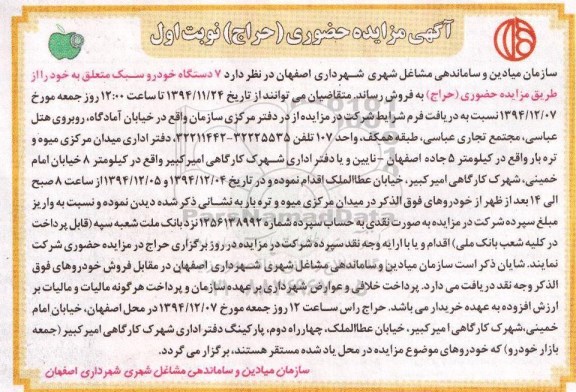 آگهی مزایده حضوری (حراج) نوبت اول
سازمان میادین و ساماندهی مشاغل شهری شهرداری اصفهان در نظر دارد ۷ دستگاه خودرو سبک متعلق به خود را از
طریق مزایده حضوری (حراج) به فروش رساند. متقاضیان می توانند از تاریخ ۱۳۹۴/۱۱/۲۴ تا ساعت ۱۲:۰۰ روز جمعه مورخ
۱۳۹۴/۱۲/۰۷ نسبت به دریافت فرم شرایط شرکت در مزایده از در دفتر مرکزی سازمان واقع در خیابان آمادگاه، روبروی هتل
عباسی، مجتمع تجاری عباسی، طبقه همکف، واحد ۱۰۷ تلفن ۳۲۲۲۵۵۳۵-۳۲۲۱۱۴۴۲ دفتر اداری میدان مرکزی میوه و
تره بار واقع در کیلومتر ۵ جاده اصفهان - نایین و یا دفتر اداری شهرک کارگاهی امیر کبیر واقع در کیلومتر ۸ خیابان امام
خمینی، شهرک کارگاهی امیر کبیر، خیابان عطاالملک اقدام نموده و در تاریخ ۱۳۹۴/۱۲/۰۴ و ۱۳۹۴/۱۲/۰۵ از ساعت ۸ صبح
الی ۱۴ بعد از ظهر از خودروهای فوق الذکر در میدان مرکزی میوه و تره بار به نشانی ذکر شده دیدن نموده و نسبت به واریز
مبلغ سپرده شرکت در مزایده به صورت نقدی به حساب سپرده شماره ۱۲۵۶۱۳۸۹۹۲ نزد بانک ملت شعبه سپه (قابل پرداخت
در کلیه شعب بانک ملی) اقدام و یا با ارایه وجه نقد سپرده شرکت در مزایده در روز برگزاری حراج در مزایده حضوری شرکت
نمایند. شایان ذکر است سازمان میادین و ساماندهی مشاغل شهری شهرداری اصفهان در مقابل فروش خودروهای فوق
الذکر وجه نقد دریافت می دارد. پرداخت خلافی و عوارض شهرداری بر عهده سازمان و پرداخت هر گونه مالیات و مالیات بر
ارزش افزوده به عهده خریدار می باشد. حراج راس ساعت ۱۲ روز جمعه مورخ ۱۳۹۴/۱۲/۰۷ در محل اصفهان، خیابان امام
خمینی،شهرک کارگاهی امیر کبیر، خیابان عطاالملک، چهارراه دوم، پارکینگ دفتر اداری شهرک کارگاهی امیر کبیر (جمعه
بازار خودرو) که خودروهای موضوع مزایده در محل یاد شده مستقر هستند، برگزار می گردد.
سازمان میادین و ساماندهی مشاغل شهری شهرداری اصفهان